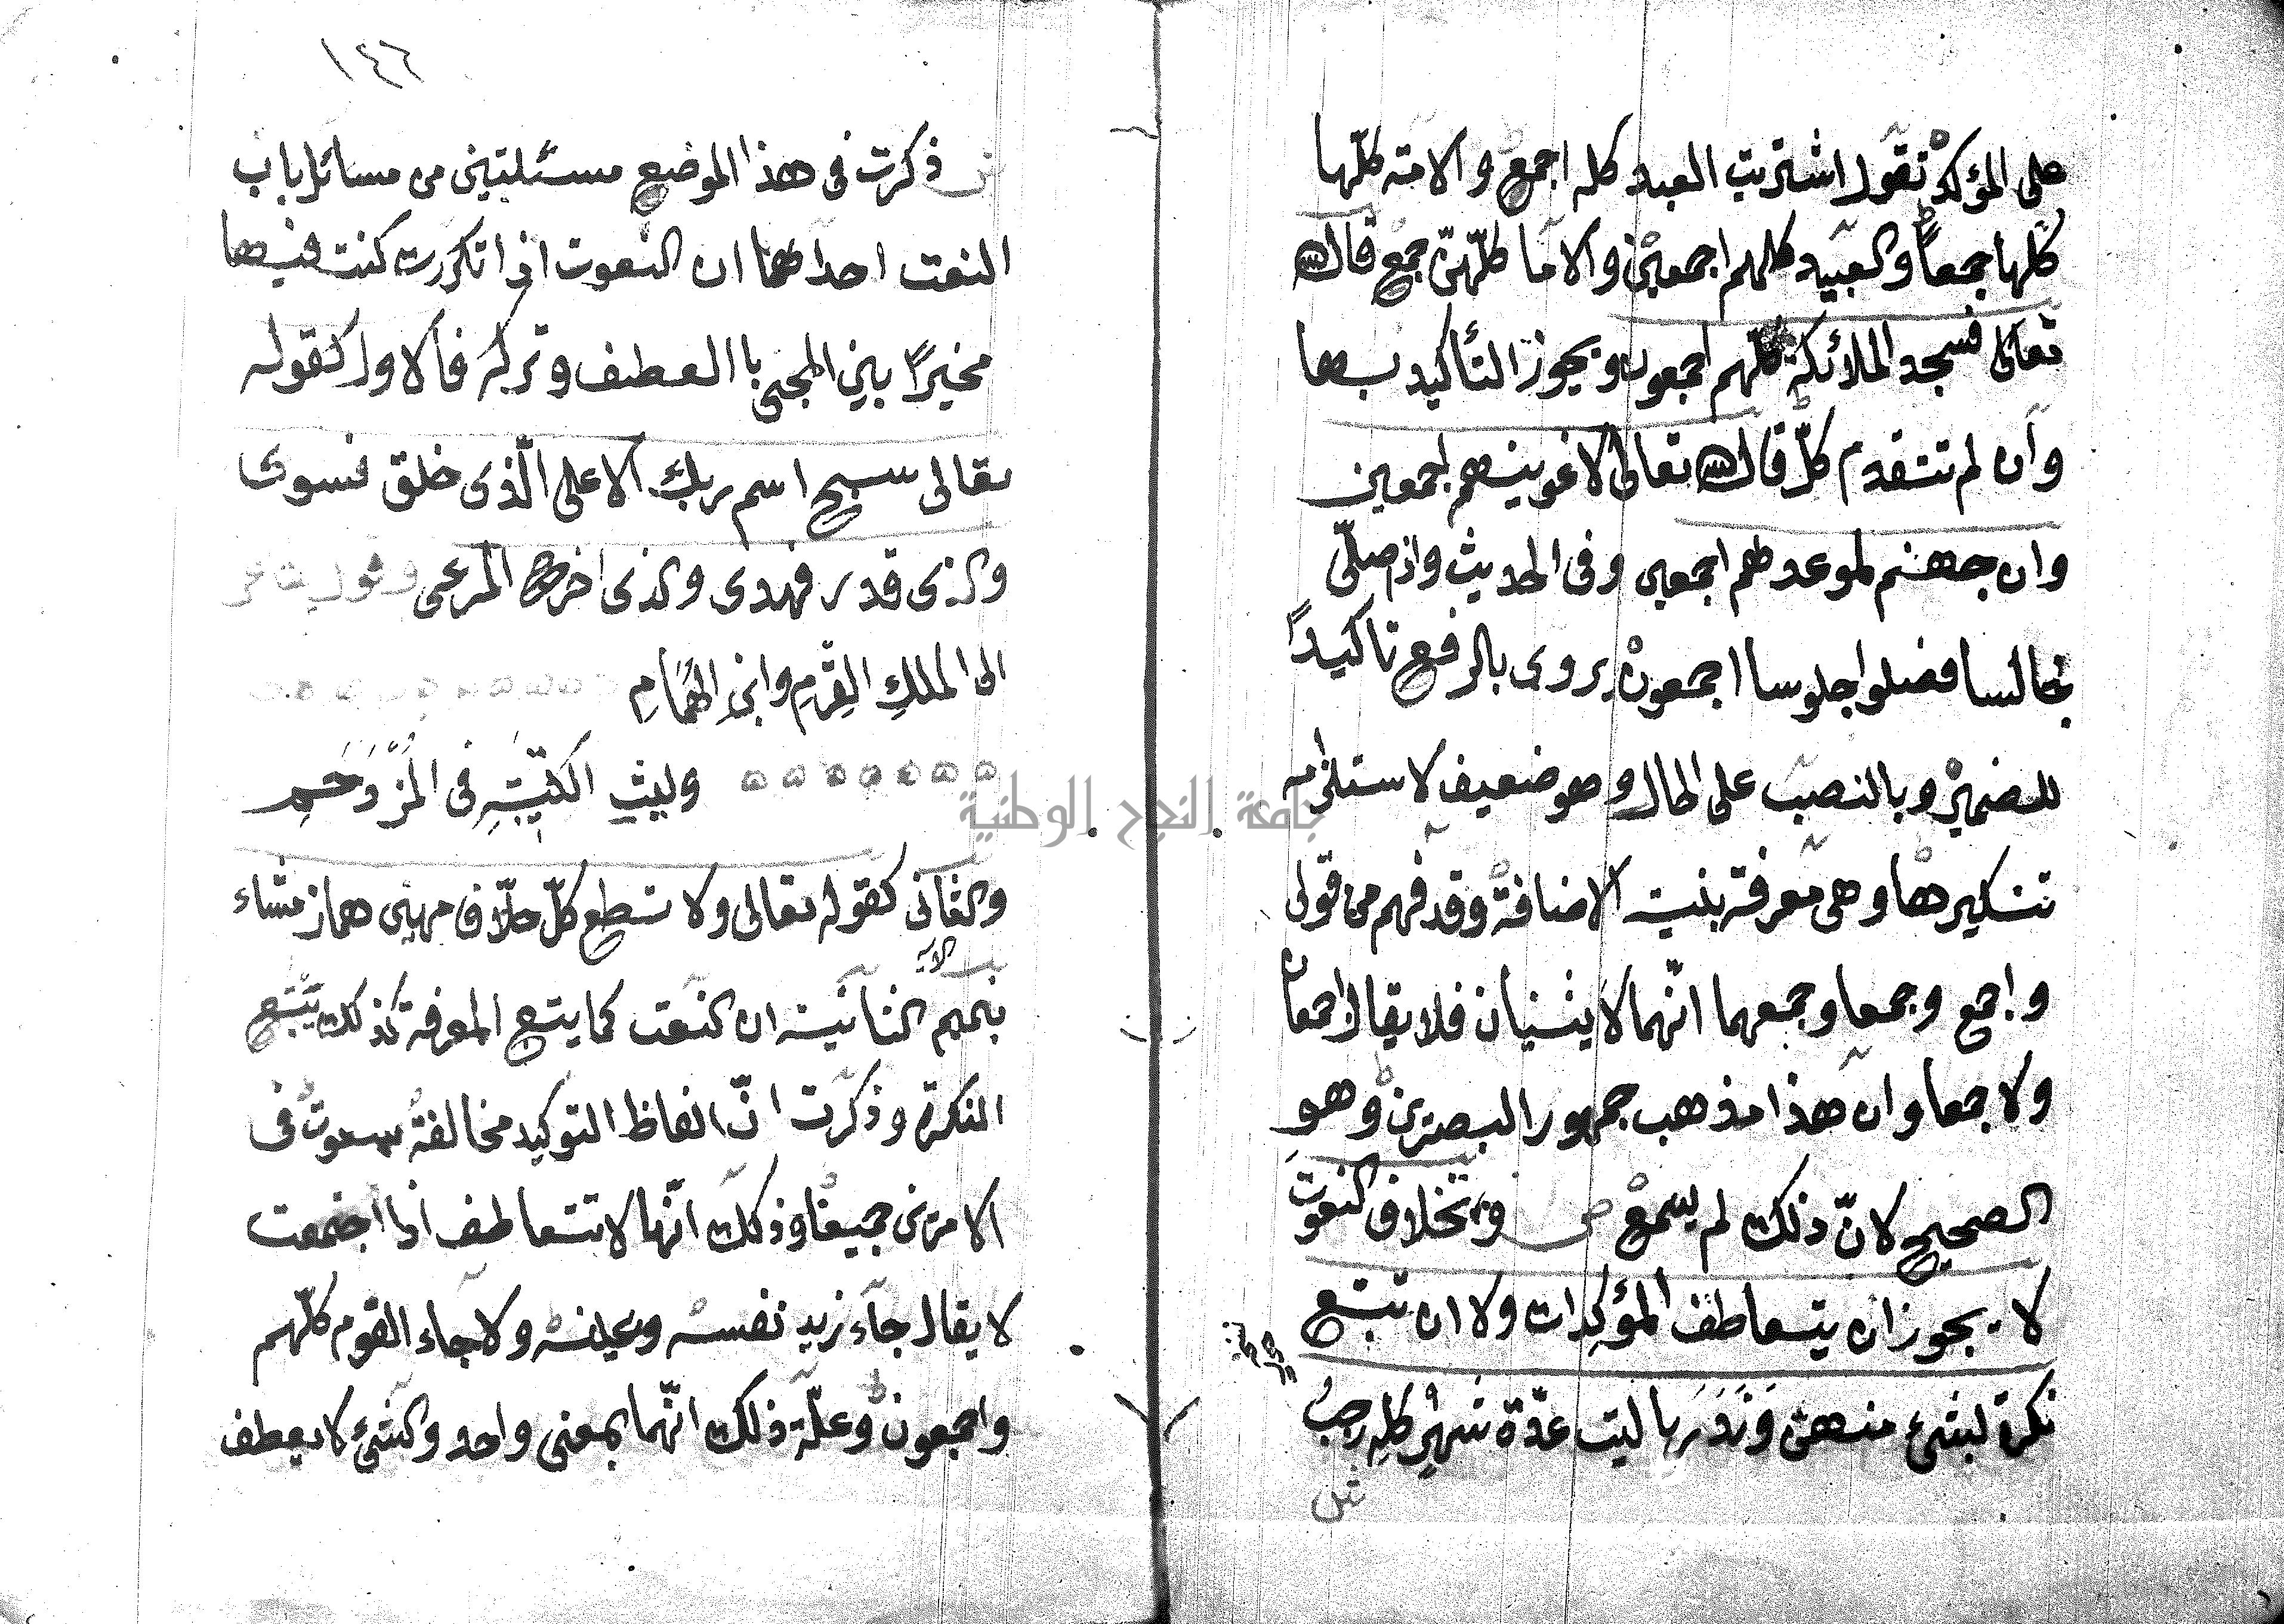 على المؤكد تقول اشتريت العبد كله اجمع والامة كلّها
كلها جمعا والعبيد كلهم اجمعين والاما كلّهنّ جمع قال الله
تعالى فسجد الملائكة كلّهم اجمعون ويجوز التأكيد بها
وان لم تتقدم كلّ قال الله تعالى لاغوينهم اجمعين
وان جهنم لموعدهم اجمعين وفى الحديث واذ صلّى
جالسا فصلوا جلوسا اجمعون يروى بالرفع تاكيدًا
للضمير وبالنصب على الحال وهو ضعيف لاستلزامه
تنكيرها وهى معرفة بنية الاضافة وقد فهم من قولى
واجمع وجمعا وجمعهما انّهما لا يثنيان فلا يقال اجمعان
ولا جمعا وان هذا مذهب جمهور البصرين وهو
الصحيح لانّ ذلك لم يسمع ص وبخلاف النعوت
لا يجوز ان يتعاطف المؤكدات ولا ان تتبع
نكرة لشئ منهن وَنَدَرَ يا ليت عدّة شهرٍ كلِهِ رجبُ
ش
١٤٦
ش ذكرت فى هذا الموضع مسئلتين من مسائل باب
النعت احداهما ان النعوت اذا تكررت كنت فيها
مخيرًا بين المجئ باالعطف وتركه فالاول كقوله
تعالى سبح اسم ربك الاعلى الّذى خلق فسوى
والذى قدر فهدى والذى اخرج المرعى وقول الشاعر
الى الملكِ القرمِ وابنِ الهُمَامِ
وليثِ الكتيبَةِ فى المُزْدَحَمِ
والثانى كقوله تعالى ولا تطع كلّ حلّاف مهين هماز مشاء
بنميم الآية الثانية ان النعت كما يتبع المعرفة كذلك يَتْبَع
النكرة وذكرت انّ الفاظ التوكيد مخالفة للنعوت فى
الامرين جميعًا وذلك انّها لا تتعاطف اذا اجتمعت
لا يقال جاء زيد نفسه وعينه ولا جاء القوم كلّهم
واجمعون وعلّة ذلك انّهما بمعنى واحد والشئ لا يعطف
جامعة النجاح الوطنية